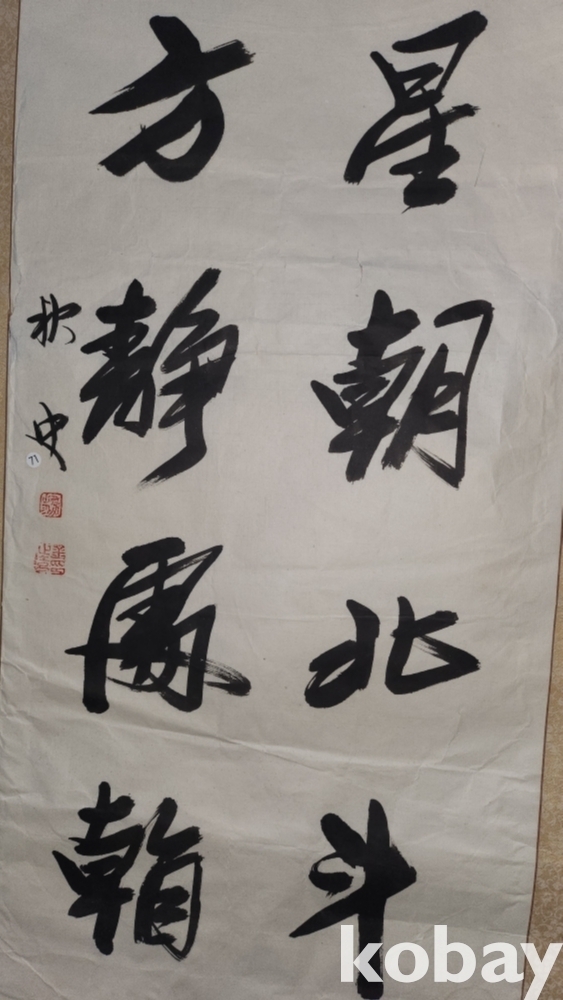 星朝北斗
方靜處
史
71
kobay